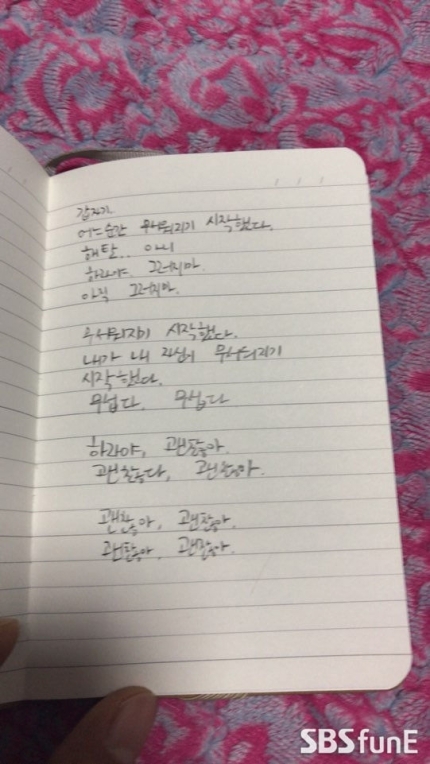 갑자기
어느순간 무서워지기 시작했다.
해탈.. 아니
하라야, 그러지마.
아직 그러지마.
무서워지기 시작했다.
내가 내 자신이 무서워지기
시작했다.
무섭다. 무섭다
하라야, 괜찮아.
괜찮다, 괜찮아.
괜찮아, 괜찮아.
괜찮아, 괜찮아.
SBSfunE